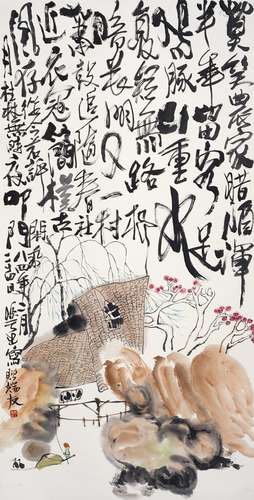 莫笑農家腊酒渾
丰年留客足
鸡豚山重水
复疑無路柳
暗花明又一村
簫鼓追随春社
近衣冠簡樸古
風存從今若許閒乘
月拄杖無時夜叩門
八四年二月